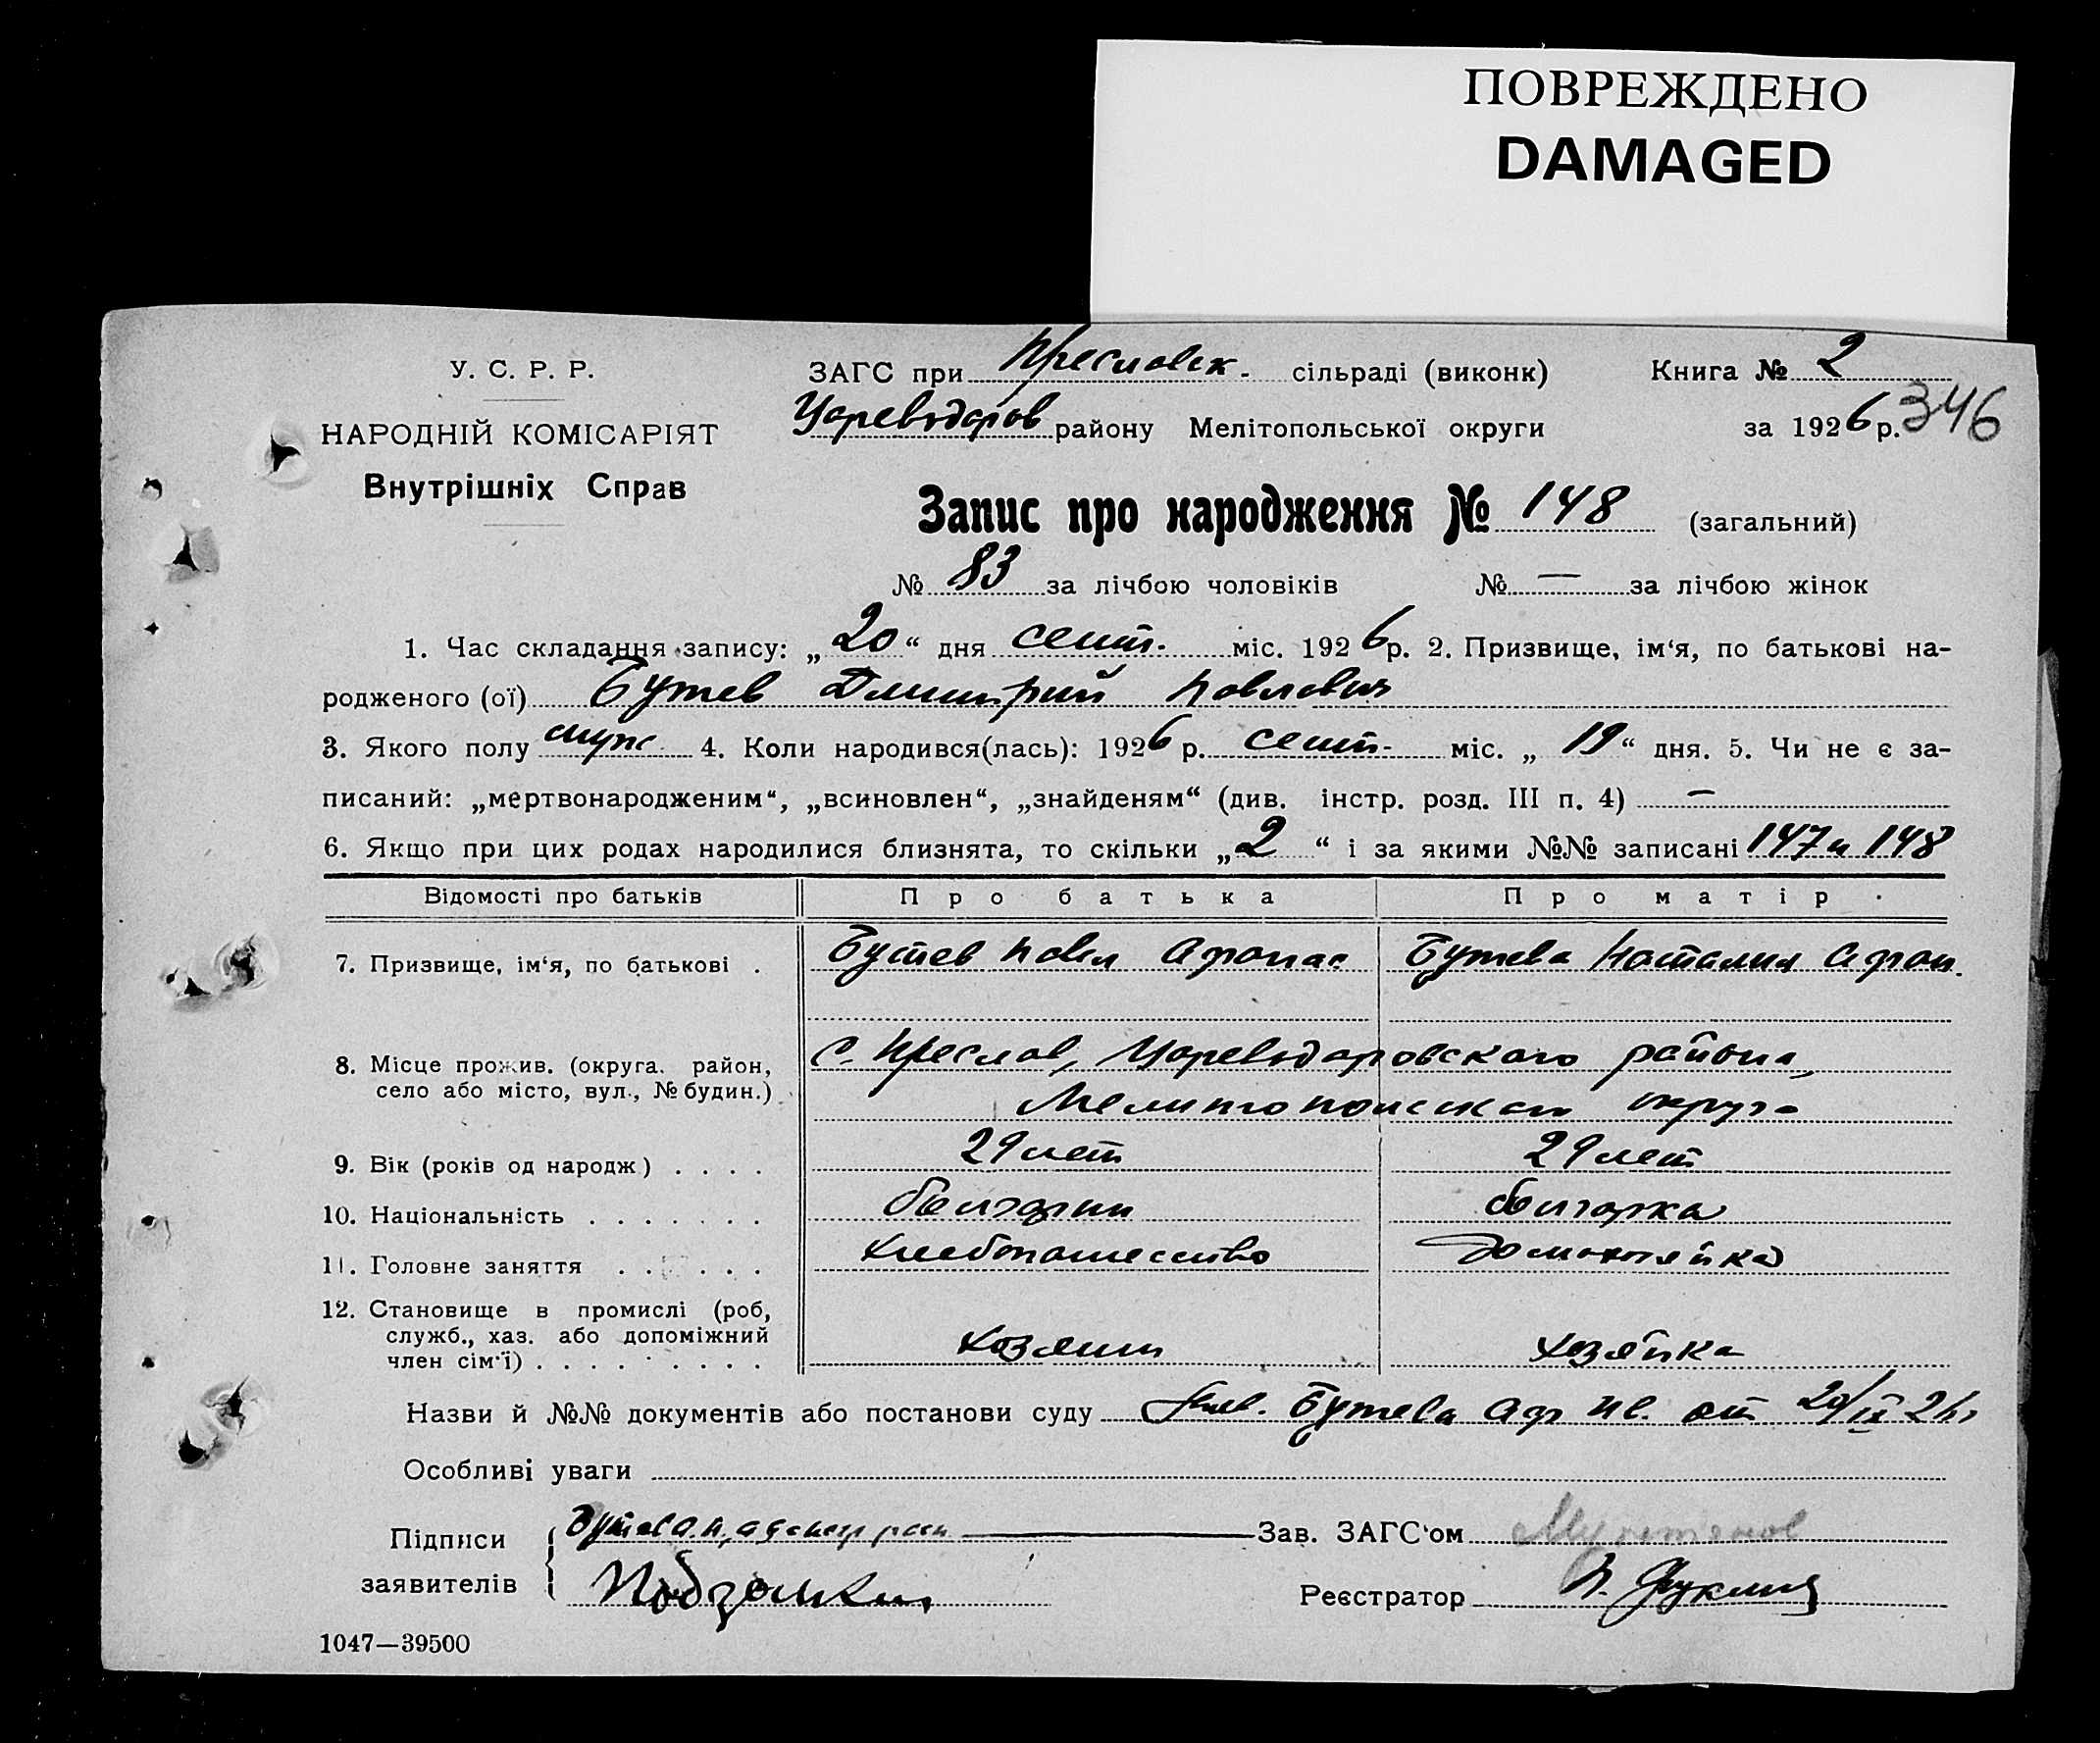 ПОВРЕЖДЕНО
DAMAGED
У. С. Р. Р. ЗАГС при Преславск. сільраді (виконк) Книга № 2
НАРОДНІЙ КОМІСАРІЯТ Цареводаров району Мелітопольської округи за 1926 р. 346
Внутрішніх Справ
Запис про народження № 148 (загальний)
№ 83 за лічбою чоловіків № — за лічбою жінок
1. Час складання запису: „20“ дня сент. міс. 1926 р. 2. Призвище, ім‘я, по батькові на-
родженого (ої) Бутев Дмитрий Павлович
3. Якого полу муж. 4. Коли народився(лась): 1926 р. сент. міс. „19“ дня. 5. Чи не є за-
писаний: „мертвонародженим“, „всиновлен“, „знайденям“ (див. інстр. розд. III п. 4) —
6. Якщо при цих родах народилися близнята, то скільки „2“ і за якими №№ записані 147 и 148
Відомості про батьків Про батька Про матір
7. Призвище, ім‘я, по батькові . Бутев Павел Афанас Бутева Наталия Афан.
8. Місце прожив. (округа. район, с. Преслав, Цареводаровского района,
село або місто, вул., № будин.) Мелитопольского округа
9. Вік (років од народж) . . . . 29 лет 29 лет
10. Національність . . . . . . . болгарин болгарка
11. Головне заняття . . . . . . хлебопашество домохозяйка
12. Становище в промислі (роб,
служб., хаз. або допоміжний
член сім‘ї) . . . . . . . . . хозяин хозяйка
Назви й №№ документів або постанови суду Бутева Аф Ив. от 20/IX 26 г
Особливі уваги
Підписи Бутев А. И., Зав. ЗАГС‘ом
заявителів Реєстратор
1047—39500